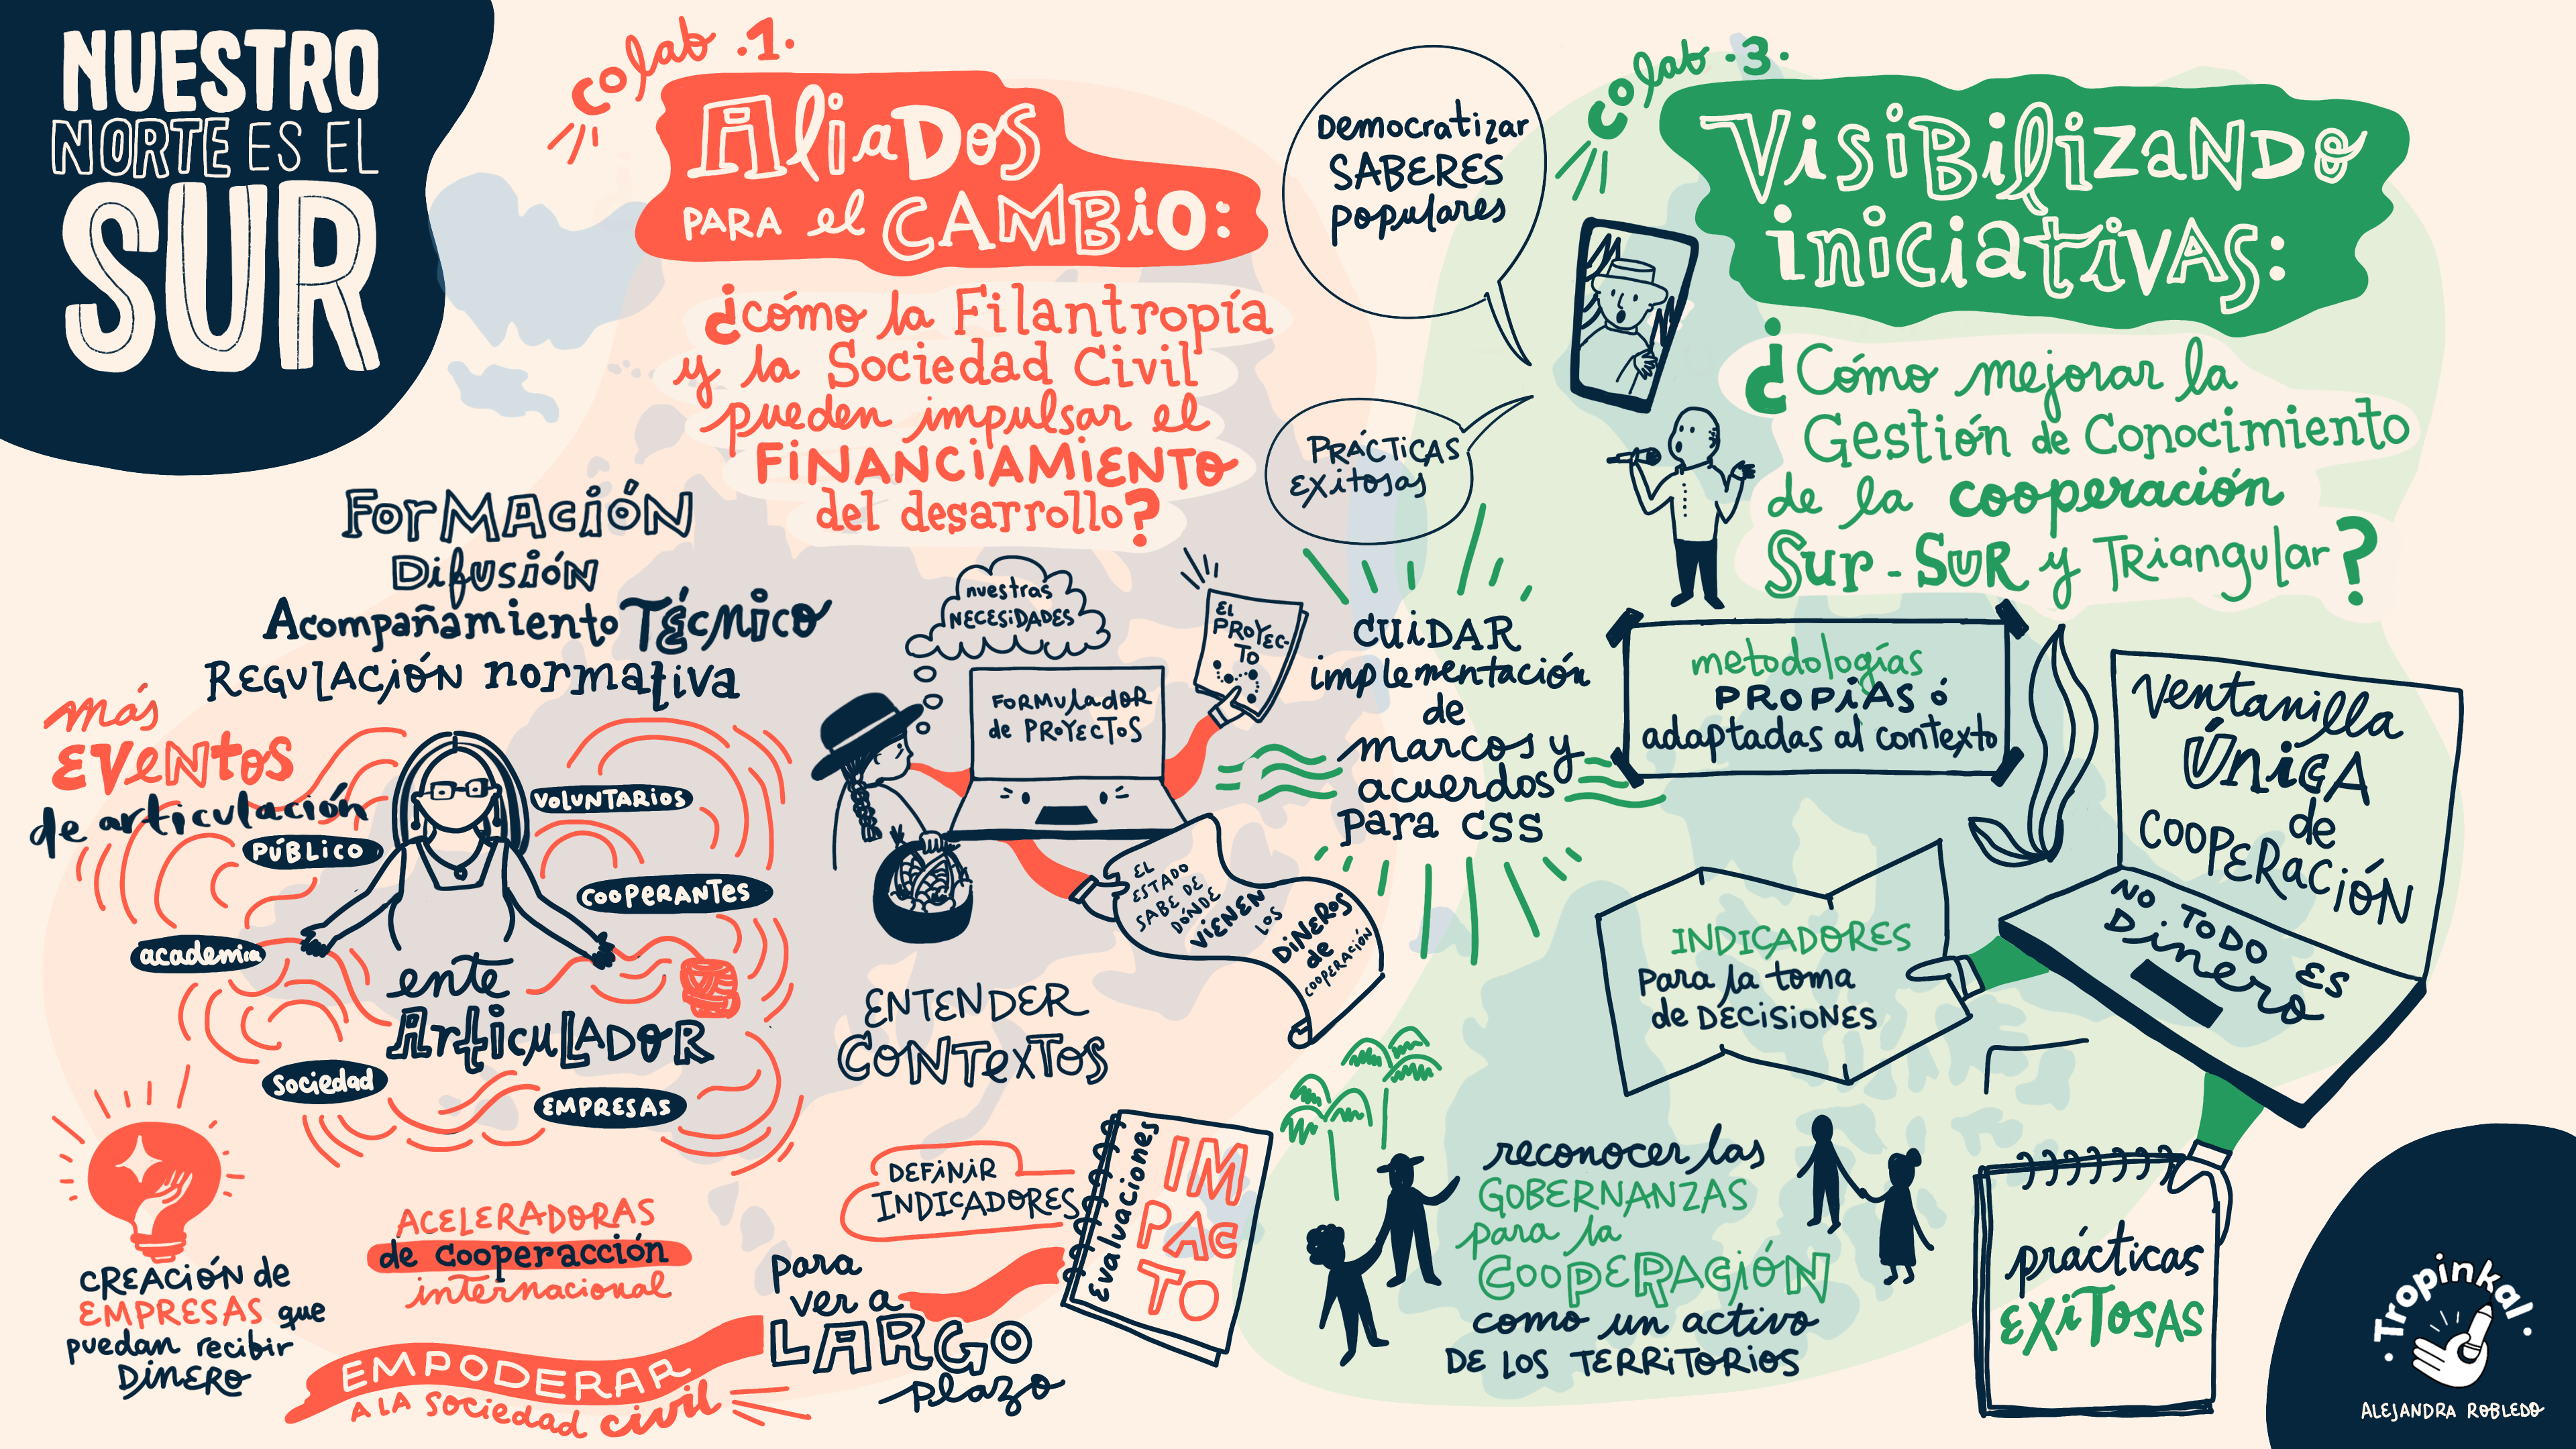 NUESTRO
NORTE ES EL
SUR
colab .1.
Aliados
PARA el CAMBIO:
¿cómo la Filantropía
y la Sociedad Civil
pueden impulsar el
FINANCIAMIENTO
del desarrollo?
Formación
Difusión
Acompañamiento Técnico
Regulación normativa
más
EVENTOS
de articulación
PÚBLICO
VOLUNTARIOS
COOPERANTES
academia
ente
Articulador
sociedad
EMPRESAS
nuestras
NECESIDADES
FORMULADOR
de PROYECTOS
EL
PROYEC-
TO
EL
ESTADO
SABE DE
DÓNDE
VIENEN
LOS
DINEROS
de
COOPERACIÓN
ENTENDER
CONTEXTOS
CREACIÓN de
EMPRESAS que
puedan recibir
DINERO
ACELERADORAS
de cooperacción
internacional
EMPODERAR
A LA sociedad civil
DEFINIR
INDICADORES
Evaluaciones
IM
PAC
TO
para
ver a
LARGO
plazo
colab .3.
Visibilizando
iniciativas:
¿Cómo mejorar la
Gestión de Conocimiento
de la cooperación
Sur-Sur y Triangular?
Democratizar
SABERES
populares
PRÁCTICAS
EXitosas
CUIDAR
implementación
de
marcos y
acuerdos
para CSS
metodologías
PROPIAS ó
adaptadas al contexto
Ventanilla
ÚNICA
de
COOPERACIÓN
NO TODO ES
Dinero
INDICADORES
para la toma
de DECISIONES
reconocer las
GOBERNANZAS
para la
COOPERACIÓN
como un activo
DE LOS TERRITORIOS
prácticas
EXITOSAS
·Tropinkal·
ALEJANDRA ROBLEDO